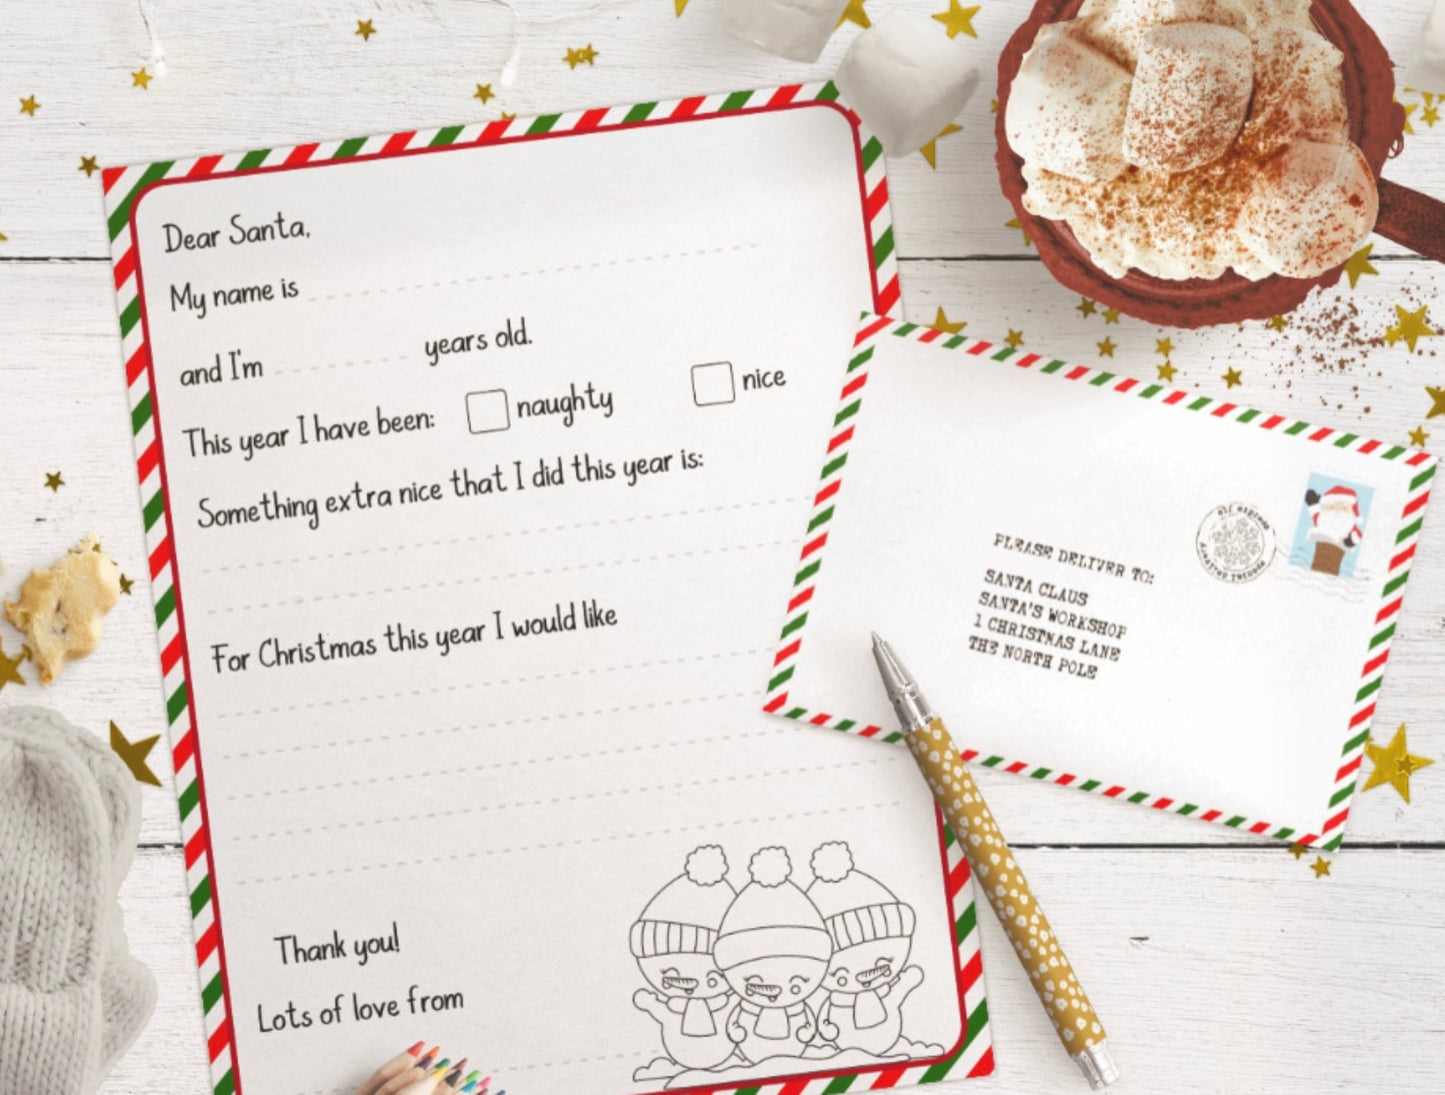 Dear Santa,
My name is
and I'm years old.
This year I have been: naughty nice
Something extra nice that I did this year is:
For Christmas this year I would like
Thank you!
Lots of love from
elf express
PLEASE DELIVER TO:
SANTA CLAUS
SANTA'S WORKSHOP
1 CHRISTMAS LANE
THE NORTH POLE